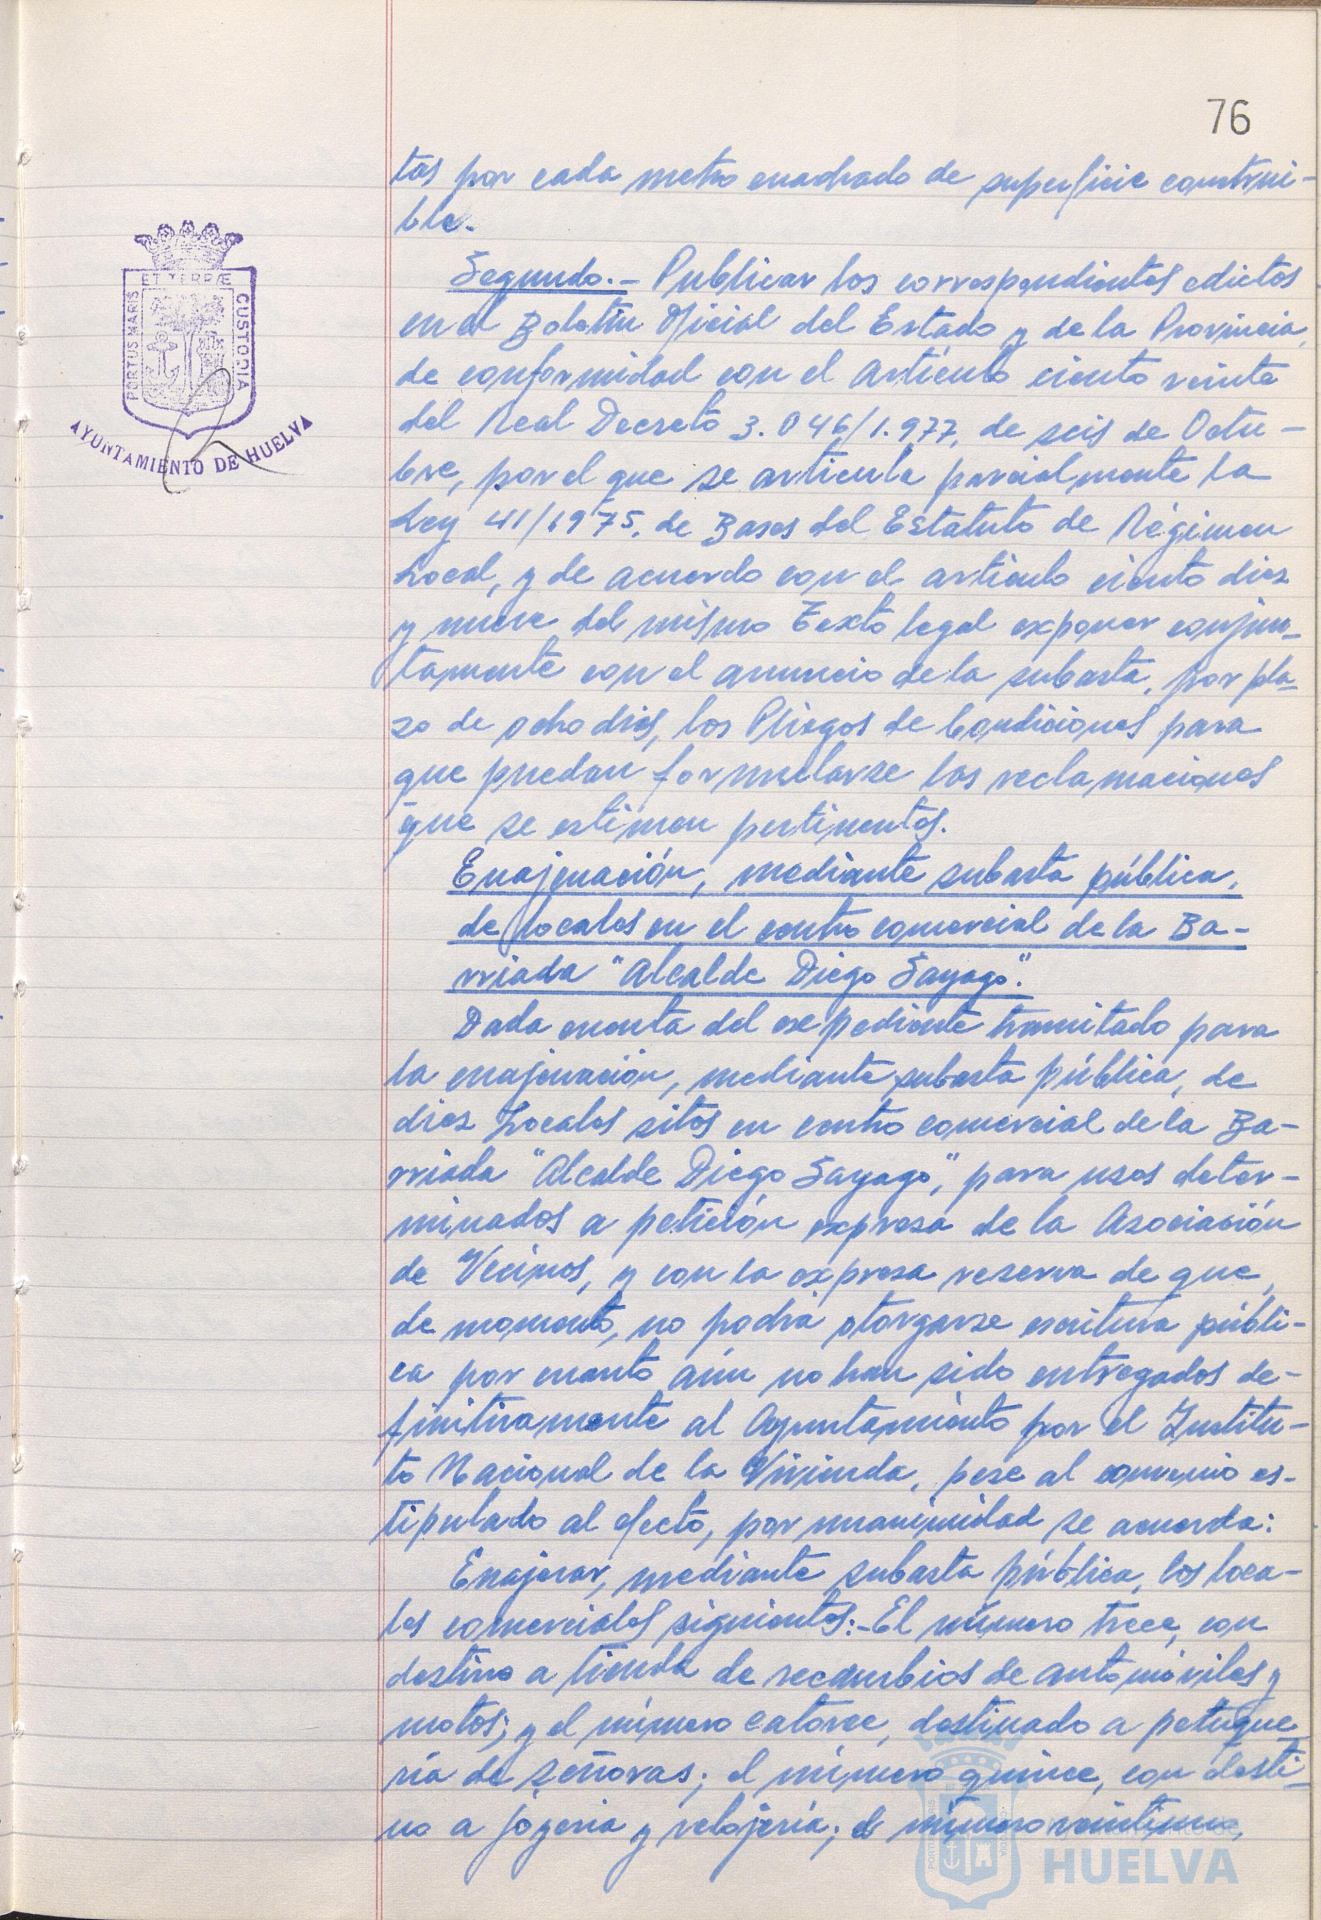 76
tas por cada metro cuadrado de superficie construi-
ble.
Segundo.- Publicar los correspondientes edictos
en el Boletín Oficial del Estado y de la Provincia,
de conformidad con el artículo ciento veinte
del Real Decreto 3.046/1.977, de seis de Octu-
bre, por el que se articula parcialmente la
Ley 41/1975, de Bases del Estatuto de Régimen
Local, y de acuerdo con el artículo ciento diez
y nueve del mismo Texto legal exponer conjun-
tamente con el anuncio de la subasta, por pla-
zo de ocho días, los Pliegos de Condiciones para
que puedan formularse las reclamaciones
que se estimen pertinentes.
Enajenación, mediante subasta pública,
de locales en el centro comercial de la Ba-
rriada "Alcalde Diego Sayago".
Dada cuenta del expediente tramitado para
la enajenación, mediante subasta pública, de
diez Locales sitos en centro comercial de la Ba-
rriada "Alcalde Diego Sayago", para usos deter-
minados a petición expresa de la Asociación
de Vecinos, y con la expresa reserva de que,
de momento, no podrá otorgarse escritura públi-
ca por cuanto aún no han sido entregados de-
finitivamente al Ayuntamiento por el Institu-
to Nacional de la Vivienda, pese al convenio es-
tipulado al efecto, por unanimidad se acuerda:
Enajenar, mediante subasta pública, los loca-
les comerciales siguientes:-El número trece, con
destino a tienda de recambios de automóviles y
motos; y el número catorce, destinado a peluque-
ría de señoras; el número quince, con desti-
no a joyería y relojería; el número veintiuno,
PORTUS MARIS ET TERRÆ CUSTODIA
AYUNTAMIENTO DE HUELVA
HUELVA